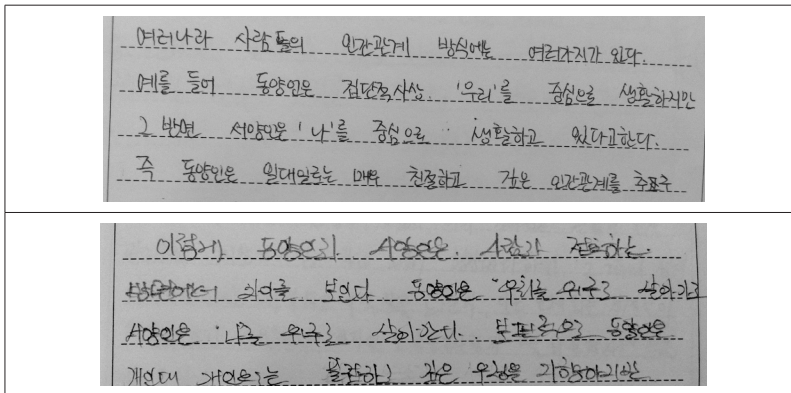 여러나라 사람들의 인간관계 방식에는 여러가지가 있다.
예를 들어 동양인은 집단적사상. '우리'를 중심으로 생활하지만
그 반면 서양인은 '나'를 중심으로 생활하고 있다고한다.
즉 동양인은 일대일로는 매우 친절하고 깊은 인간관계를 추구
이렇게 동양인과 서양인은. 사람과 접촉하는.
차이를 보인다 동양인은 '우리'를 위주로 살아가고
서양인은 '나'를 위주로 살아간다. 보편적으로 동양인은
개인대 개인으로는 깊은 우정을